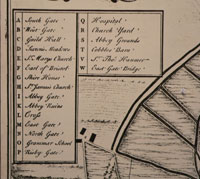 A South Gate
B West Gate
C Guild Hall
D Meadows
E St. Marys Church
F Earl of Bristol
G Shire House
H St. James's Church
I Abbey Gate
K Abbey Ruins
L Cross
M East Gate
N North Gate
O Grammar School
P Risby Gate
Q Hospital
R Church Yard
S Abbey Grounds
T Cobbles Barn
V Sr. Tho. Hanmer
W East Gate Bridge